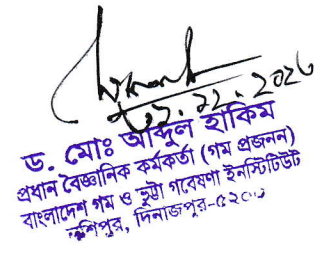 ড. মোঃ আব্দুল হাকিম
প্রধান বৈজ্ঞানিক কর্মকর্তা (গম প্রজনন)
বাংলাদেশ গম ও ভুট্টা গবেষণা ইনস্টিটিউট
নশিপুর, দিনাজপুর-৫২০০